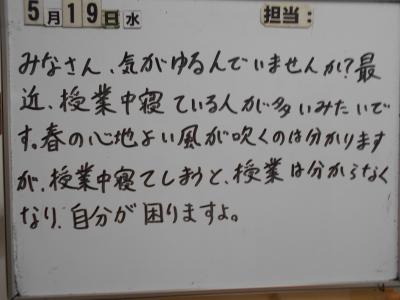 5月19日水 担当:
みなさん、気がゆるんでいませんか?最
近、授業中寝ている人が多いみたいで
す。春の心地よい風が吹くのは分かります
が、授業中寝てしまうと、授業は分からなく
なり、自分が困りますよ。